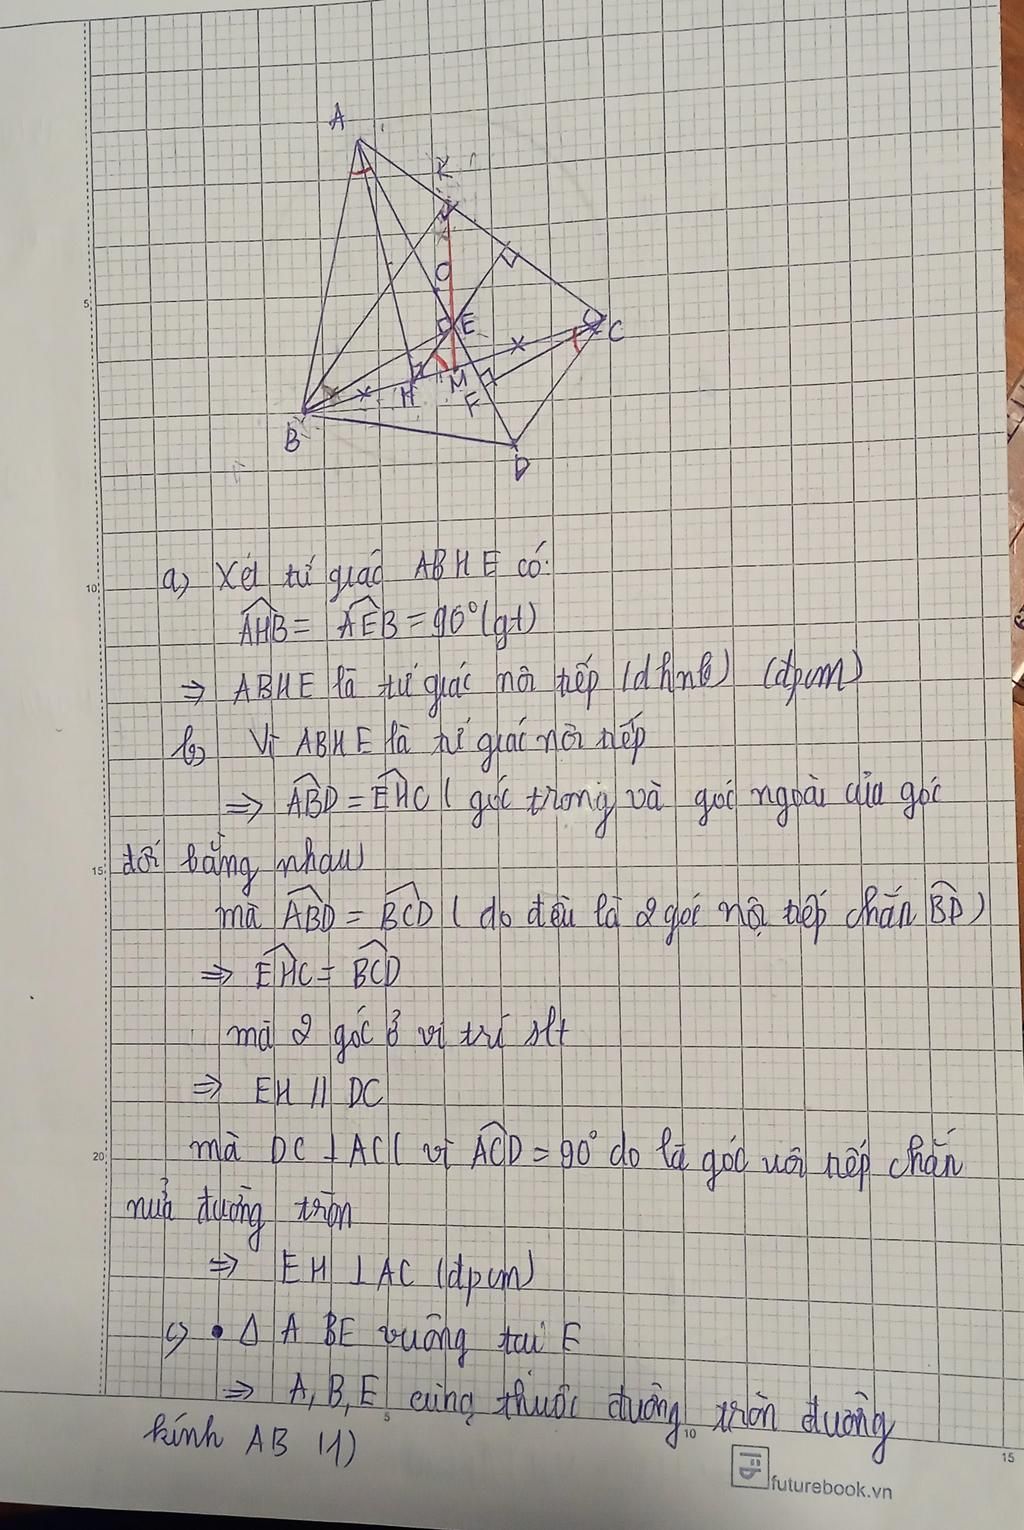 A
K
O
E
C
M
H
F
B
D
5
10
a) Xét tứ giác ABHE có:
AHB = AEB = 90° (gt)
⇒ ABHE là tứ giác nội tiếp (dhnb) (đpcm)
b) Vì ABHE là tứ giác nội tiếp
⇒ ABD = EHC ( góc trong và góc ngoài của góc
15
đối bằng nhau)
mà ABD = BCD ( do đều là 2 góc nội tiếp chắn BD)
⇒ EHC = BCD
mà 2 góc ở vị trí slt
⇒ EH // DC
20
mà DC ⊥ AC ( vì ACD = 90° do là góc nội tiếp chắn
nửa đường tròn
⇒ EH ⊥ AC (đpcm)
c) • Δ ABE vuông tại E
⇒ A, B, E cùng thuộc đường tròn đường
kính AB (1)
5
10
15
futurebook.vn